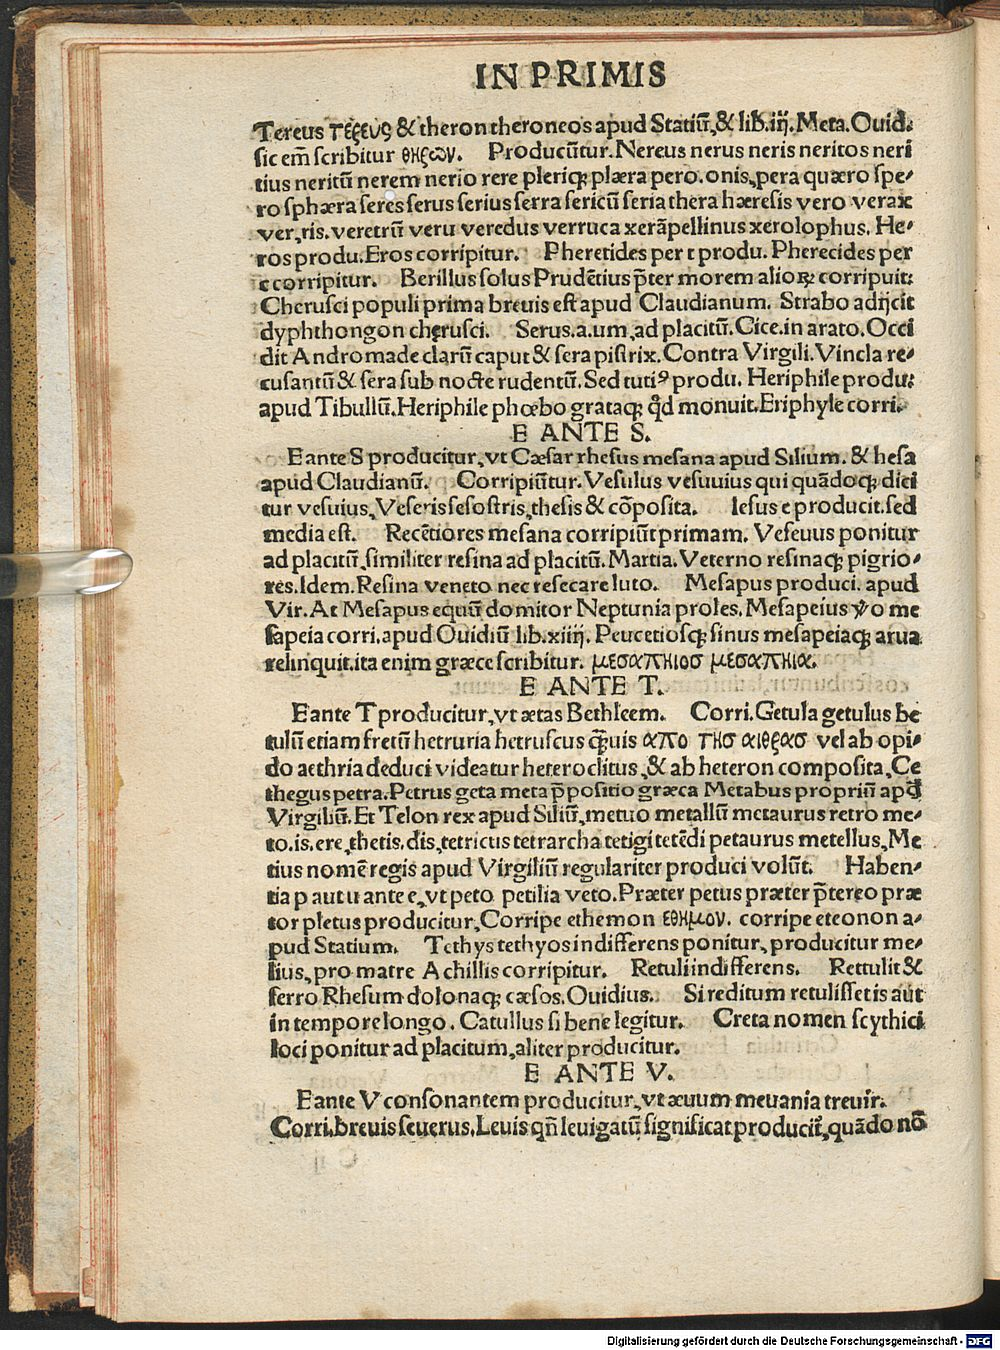 IN PRIMIS
Tereus τερευς & theron theroneos apud Statiū, & lib. iij. Meta. Ouid.
sic em̄ scribitur θηρων. Producūtur. Nereus nerus neris neritos neri
tius neritū nerem nerio rere pleriq; plæra pero. onis, pera quæro spe-
ro sphæra seres serus serius serra sericū seria thera hæresis vero verax
ver, ris. veretrū veru veredus verruca xerāpellinus xerolophus. He-
ros produ. Eros corripitur. Pheretides per t produ. Pherecides per
c corripitur. Berillus solus Prudētius p̄ter morem alioꝝ corripuit:
Cherusci populi prima breuis est apud Claudianum. Strabo adijcit
dyphthongon chęrusci. Serus. a. um, ad placitū. Cice. in arato. Occi
dit Andromade clarū caput & sera pistrix. Contra Virgili. Vincla re-
cusantū & sera sub nocte rudentū. Sed tutiꝰ produ. Heriphile produ:
apud Tibullū. Heriphile phœbo grataq; qd̄ monuit. Eriphyle corri.
E ANTE S.
E ante S producitur, vt Cæsar rhesus mesana apud Silium. & hesa
apud Claudianū. Corripiūtur. Vesulus vesuuius qui quādoq; dici
tur vesuius, Veseris sesostris, thesis & cōposita. Iesus e producit. sed
media est. Recētiores mesana corripiūt primam. Veseuus ponitur
ad placitū, similiter resina ad placitū. Martia. Veterno resinaq; pigrio-
res. Idem. Resina veneto nec resecare luto. Mesapus produci. apud
Vir. At Mesapus equū domitor Neptunia proles. Mesapeius v̊o me
sapeia corri. apud Ouidiū lib. xiiij. Peucetiosq; sinus mesapeiaq; arua
relinquit. ita enim græce scribitur. μεσαπηιοσ μεσαπηια.
E ANTE T.
E ante T producitur, vt ætas Bethleem. Corri. Getula getulus be
tulū etiam fretū hetruria hetruscus q̄uis απο τησ αιθρασ vel ab opi-
do aethria deduci videatur heteroclitus, & ab heteron composita, Ce
thegus petra. Petrus geta meta p̄positio græca Metabus propriū apd̄
Virgiliū. Et Telon rex apud Siliū, metuo metallū metaurus retro me-
to. is. ere, thetis. dis, tetricus tetrarcha tetigi tetēdi petaurus metellus, Me
tius nomē regis apud Virgiliū regulariter produci volūt. Haben-
tia p aut u ante e, vt peto petilia veto. Præter petus præter p̄tereo præ
tor pletus producitur, Corripe ethemon εθημον. corripe eteonon a-
pud Statium. Tethys tethyos indifferens ponitur, producitur me-
lius, pro matre Achillis corripitur. Retuli indifferens. Rettulit &
ferro Rhesum dolonaq; cæsos. Ouidius. Si reditum retulissetis aut
in tempore longo. Catullus si bene legitur. Creta nomen scythici
loci ponitur ad placitum, aliter producitur.
E ANTE V.
E ante V consonantem producitur, vt æuum meuania treuir.
Corri. breuis seuerus. Leuis qn̄ leuigatū significat producit̄, quādo nō
Digitalisierung gefördert durch die Deutsche Forschungsgemeinschaft - DFG